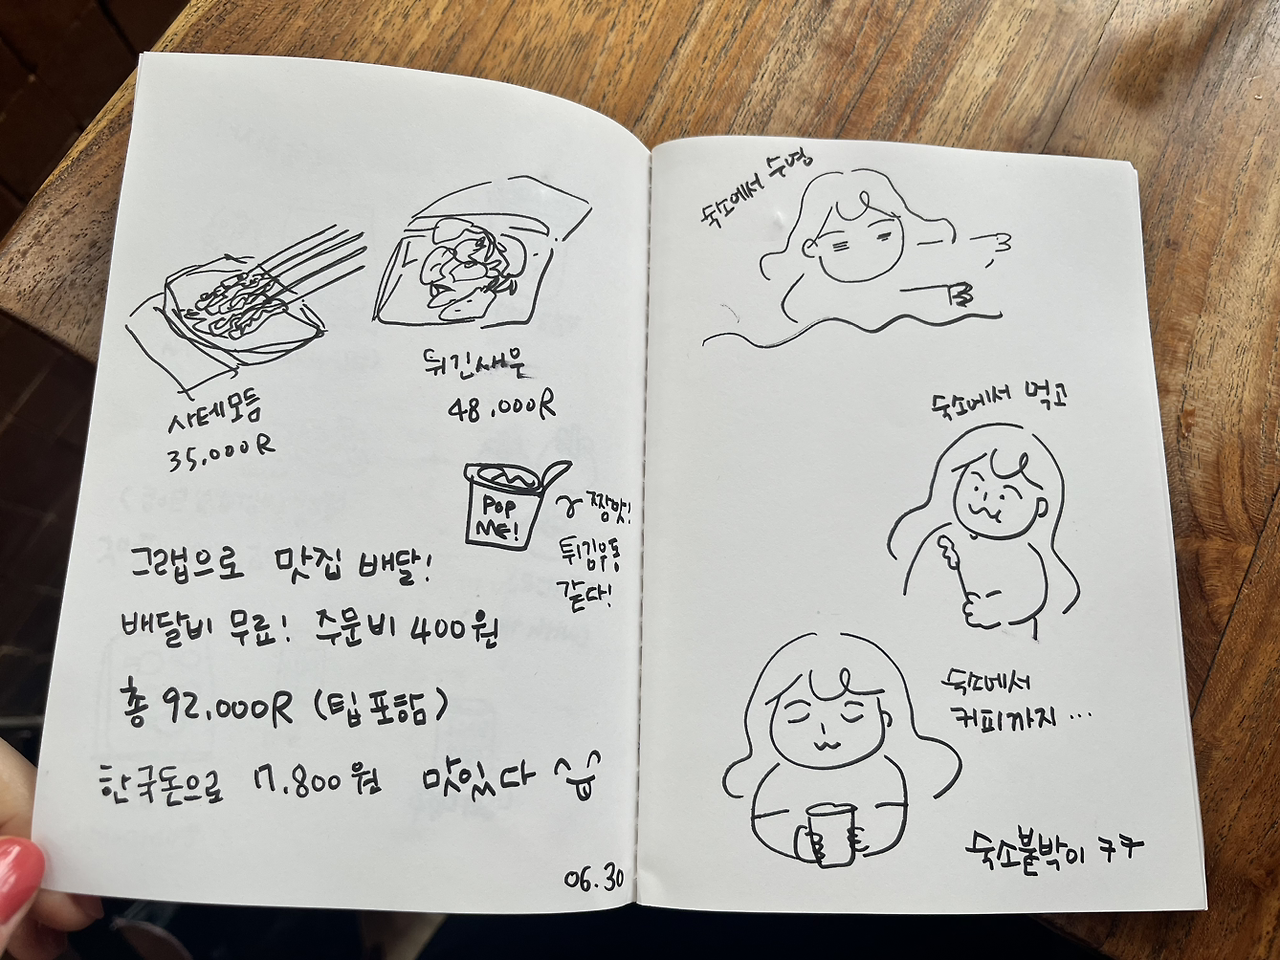 사테모듬
35,000R
튀긴새우
48,000R
POP
ME!
짱맛!
튀김우동
같다!
그랩으로 맛집 배달!
배달비 무료! 주문비 400원
총 92,000R (팁 포함)
한국돈으로 7,800원 맛있다
06.30
숙소에서 수영
숙소에서 먹고
숙소에서
커피까지...
숙소붙박이 ㅋㅋ